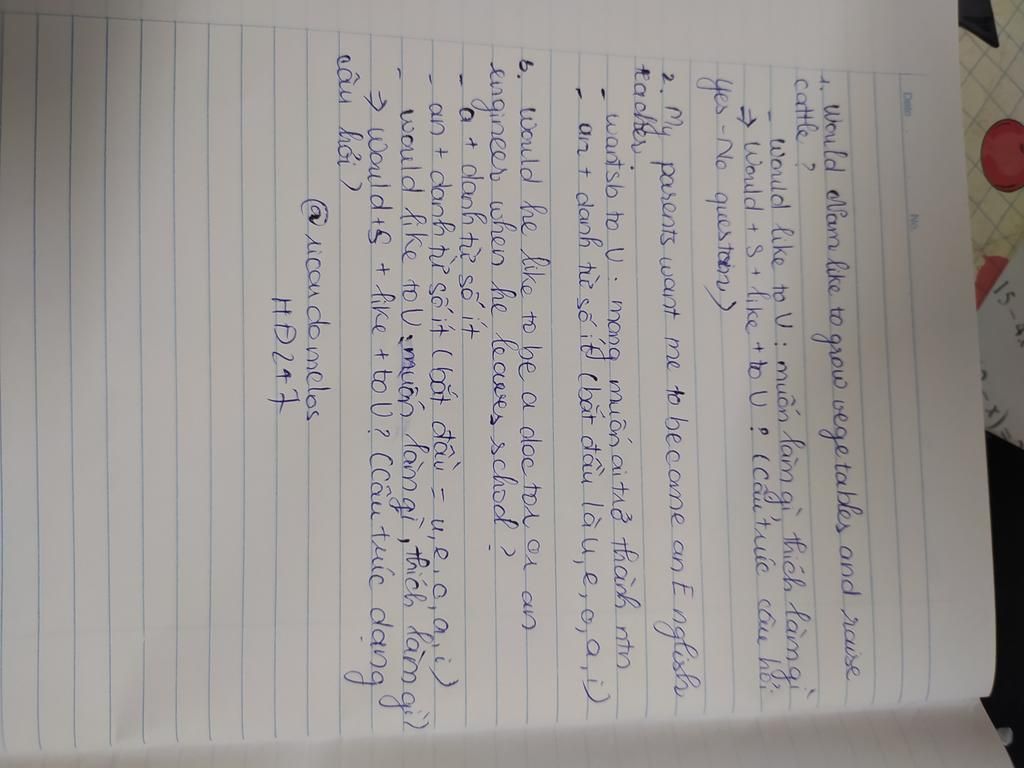 Date . No.
1. Would Nam like to grow vegetables and raise
cattle ?
- would like to V : muốn làm gì, thích làm gì
⇒ Would + S + like + to V ? (Cấu trúc câu hỏi
yes - No question)
2. My parents want me to become an English
teacher.
- want sb to V : mong muốn ai trở thành ntn
- an + danh từ số ít (bắt đầu là u, e, o, a, i)
3. Would he like to be a doctor or an
engineer when he leaves school ?
- a + danh từ số ít
- an + danh từ số ít (bắt đầu = u, e, o, a, i)
- would like to V : muốn làm gì, thích làm gì)
⇒ would + S + like + to V ? (Cấu trúc dạng
câu hỏi)
HD247
15 -